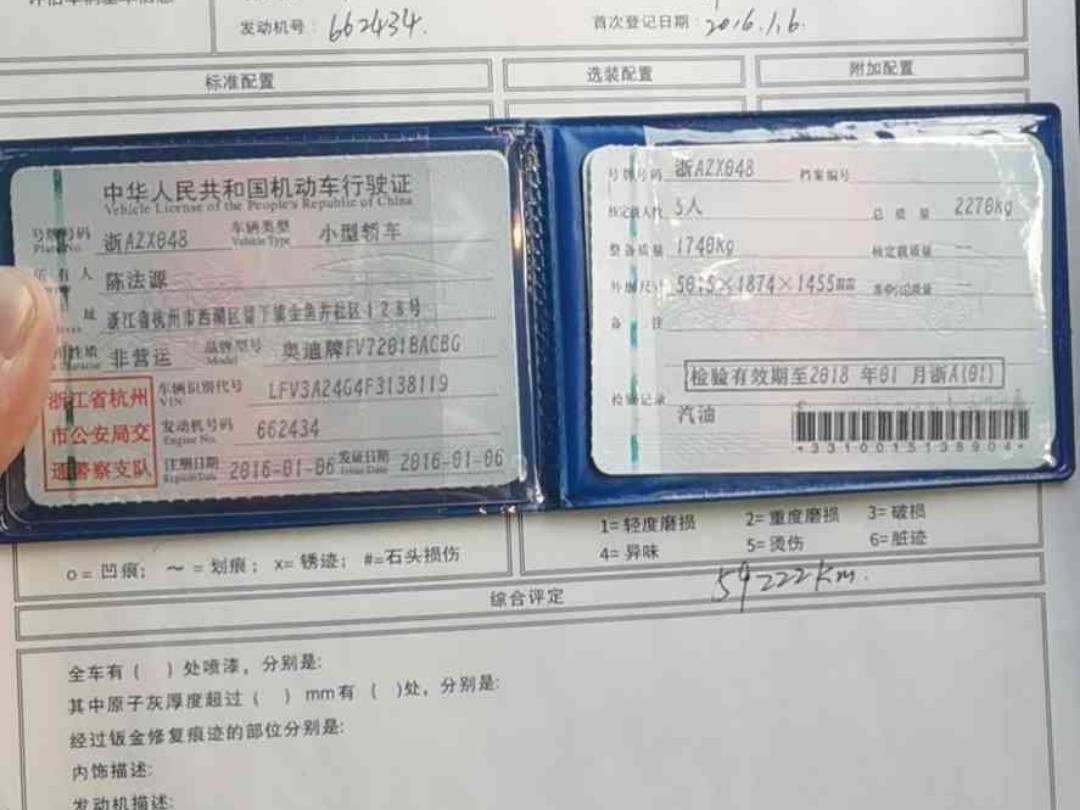 评估车辆基本信息
发动机号: 662434.
首次登记日期: 2016.1.6.
标准配置
选装配置
附加配置
中华人民共和国机动车行驶证
Vehicle License of the People's Republic of China
号牌号码 浙AZX048 车辆类型 小型轿车
Plate No. Vehicle Type
所有人 陈法源
址 浙江省杭州市西湖区留下镇金鱼井社区128号
用性质 非营运 品牌型号 奥迪牌FV7201BACBG
Character Model
浙江省杭州
市公安局交
通警察支队
车辆识别代号 LFV3A24G4F3138119
VIN
发动机号码 662434
Engine No.
注册日期 2016-01-06 发证日期 2016-01-06
Register Date Issue Date
号牌号码 浙AZX048 档案编号
核定载人数 5人 总质量 2270kg
整备质量 1740kg 核定载质量 --
外廓尺寸 5015×1874×1455mm 准牵引总质量 --
备注
检验有效期至2018年01月浙A(01)
检验记录
汽油
*3310015138904*
o=凹痕; ～=划痕; x=锈迹; #=石头损伤
1=轻度磨损 2=重度磨损 3=破损
4=异味 5=烫伤 6=脏迹
综合评定
59222km.
全车有( )处喷漆，分别是:
其中原子灰厚度超过( )mm有( )处，分别是:
经过钣金修复痕迹的部位分别是:
内饰描述:
发动机描述: